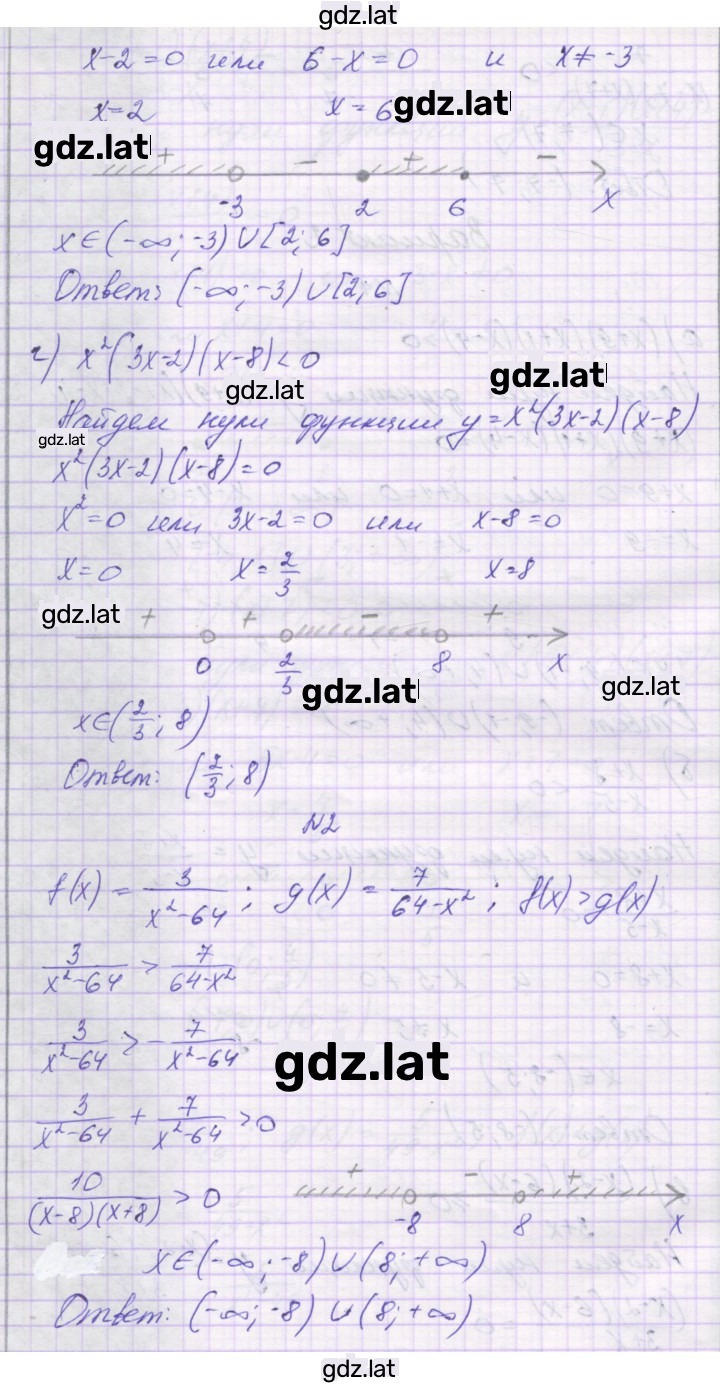 gdz.lat
x-2=0 или 6-x=0 и x≠-3
x=2 x=6
gdz.lat
gdz.lat
+ - + -
-3 2 6 x
x∈(-∞;-3)∪[2;6]
Ответ: (-∞;-3)∪[2;6]
г) x²(3x-2)(x-8)<0
gdz.lat
gdz.lat
Найдем нули функции y=x²(3x-2)(x-8)
gdz.lat
x²(3x-2)(x-8)=0
x²=0 или 3x-2=0 или x-8=0
x=0 x=2/3 x=8
gdz.lat
+ + - +
0 2/3 8 x
gdz.lat
gdz.lat
x∈(2/3;8)
Ответ: (2/3;8)
N2
f(x)=3/(x²-64); g(x)=7/(64-x²); f(x)>g(x)
3/(x²-64) > 7/(64-x²)
3/(x²-64) > -7/(x²-64)
gdz.lat
3/(x²-64) + 7/(x²-64) >0
10/((x-8)(x+8)) > 0
+ - +
-8 8 x
x∈(-∞;-8)∪(8;+∞)
Ответ: (-∞;-8)∪(8;+∞)
gdz.lat